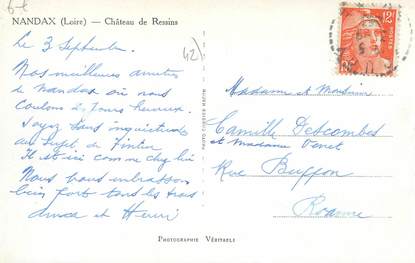 6 €
NANDAX (Loire) — Château de Ressins
Le 3 Septembre
42)
Nos meilleures amitiés
de Nandax où nous
coulons de jours heureux.
Soyez sans inquiétude
au sujet de
Il est ici comme chez lui
Nous vous embrassons
bien fort tous les trois
et Henri
PHOTO
Madame et Monsieur
Camille Descombes
et madame
Rue Buffon
Roanne
12F
PHOTOGRAPHIE VÉRITABLE